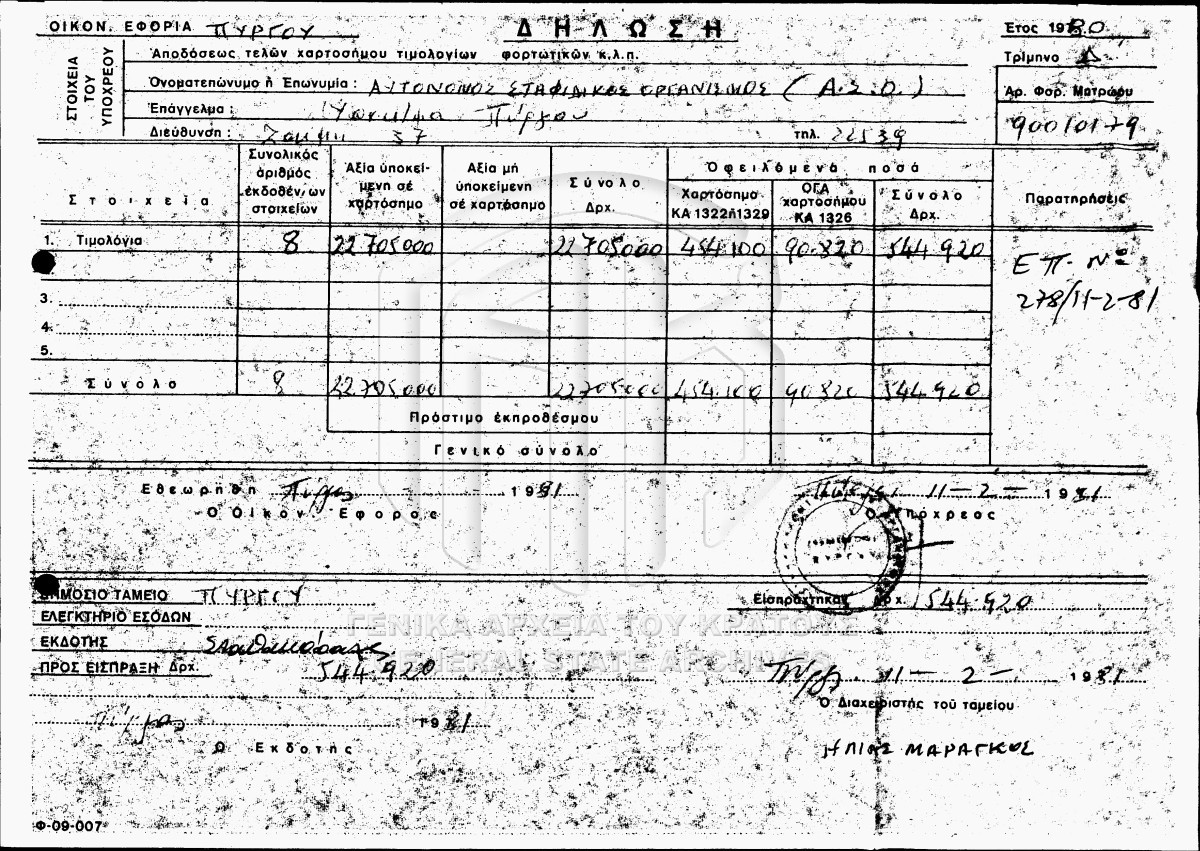 ΟΙΚΟΝ. ΕΦΟΡΙΑ ΠΥΡΓΟΥ ΔΗΛΩΣΗ Ετος 1980
Αποδόσεως τελών χαρτοσήμου τιμολογίων φορτωτικών κ.λ.π. Τρίμηνο Δ
ΣΤΟΙΧΕΙΑ ΤΟΥ ΥΠΟΧΡΕΟΥ
Όνοματεπώνυμο ή Επωνυμία : ΑΥΤΟΝΟΜΟΣ ΣΤΑΦΙΔΙΚΟΣ ΟΡΓΑΝΙΣΜΟΣ (Α.Σ.Ο.) Άρ. Φορ. Μητρώου
Επάγγελμα : Υποκ/μα Πύργου 90010179
Διεύθυνση : 37 τηλ. 22539
Στοιχεία Συνολικός άριθμός έκδοθέντων στοιχείων Άξία ύποκειμένη σέ χαρτόσημο Αξία μή ύποκείμενη σέ χαρτόσημο Σύνολο Δρχ. Όφειλόμενα ποσά Χαρτόσημο ΚΑ 1322ή1329 ΟΓΑ χαρτοσήμου ΚΑ 1326 Σύνολο Δρχ. Παρατηρήσεις
1. Τιμολόγια 8 22705000 22705000 454.100 90.820 544.920 ΕΠ. Νο
3. 278/11-2-81
4.
5.
Σύνολο 8 22.705.000 22705000 454.100 90.820 544.920
Πρόστιμο έκπροθέσμου
Γενικό σύνολο
Εθεωρήθη Πύργος 1981 Πύργος 11-2- 1981
Ο Οίκον. Έφορος Ο Υπόχρεος
ΔΗΜΟΣΙΟ ΤΑΜΕΙΟ ΠΥΡΓΟΥ Είσπράχτηκαν Δρχ. 544.920
ΕΛΕΓΚΤΗΡΙΟ ΕΣΟΔΩΝ
ΓΕΝΙΚΑ ΑΡΧΕΙΑ ΤΟΥ ΚΡΑΤΟΥΣ
ΕΚΔΟΤΗΣ
GENERAL STATE ARCHIVES
ΠΡΟΣ ΕΙΣΠΡΑΞΗ Δρχ. 544.920 Πύργος 11-2- 1981
Πύργος 1981 Ο Διαχειριστής τοῦ ταμείου
Ο Εκδοτής ΗΛΙΑΣ ΜΑΡΑΓΚΟΣ
Φ-09-007